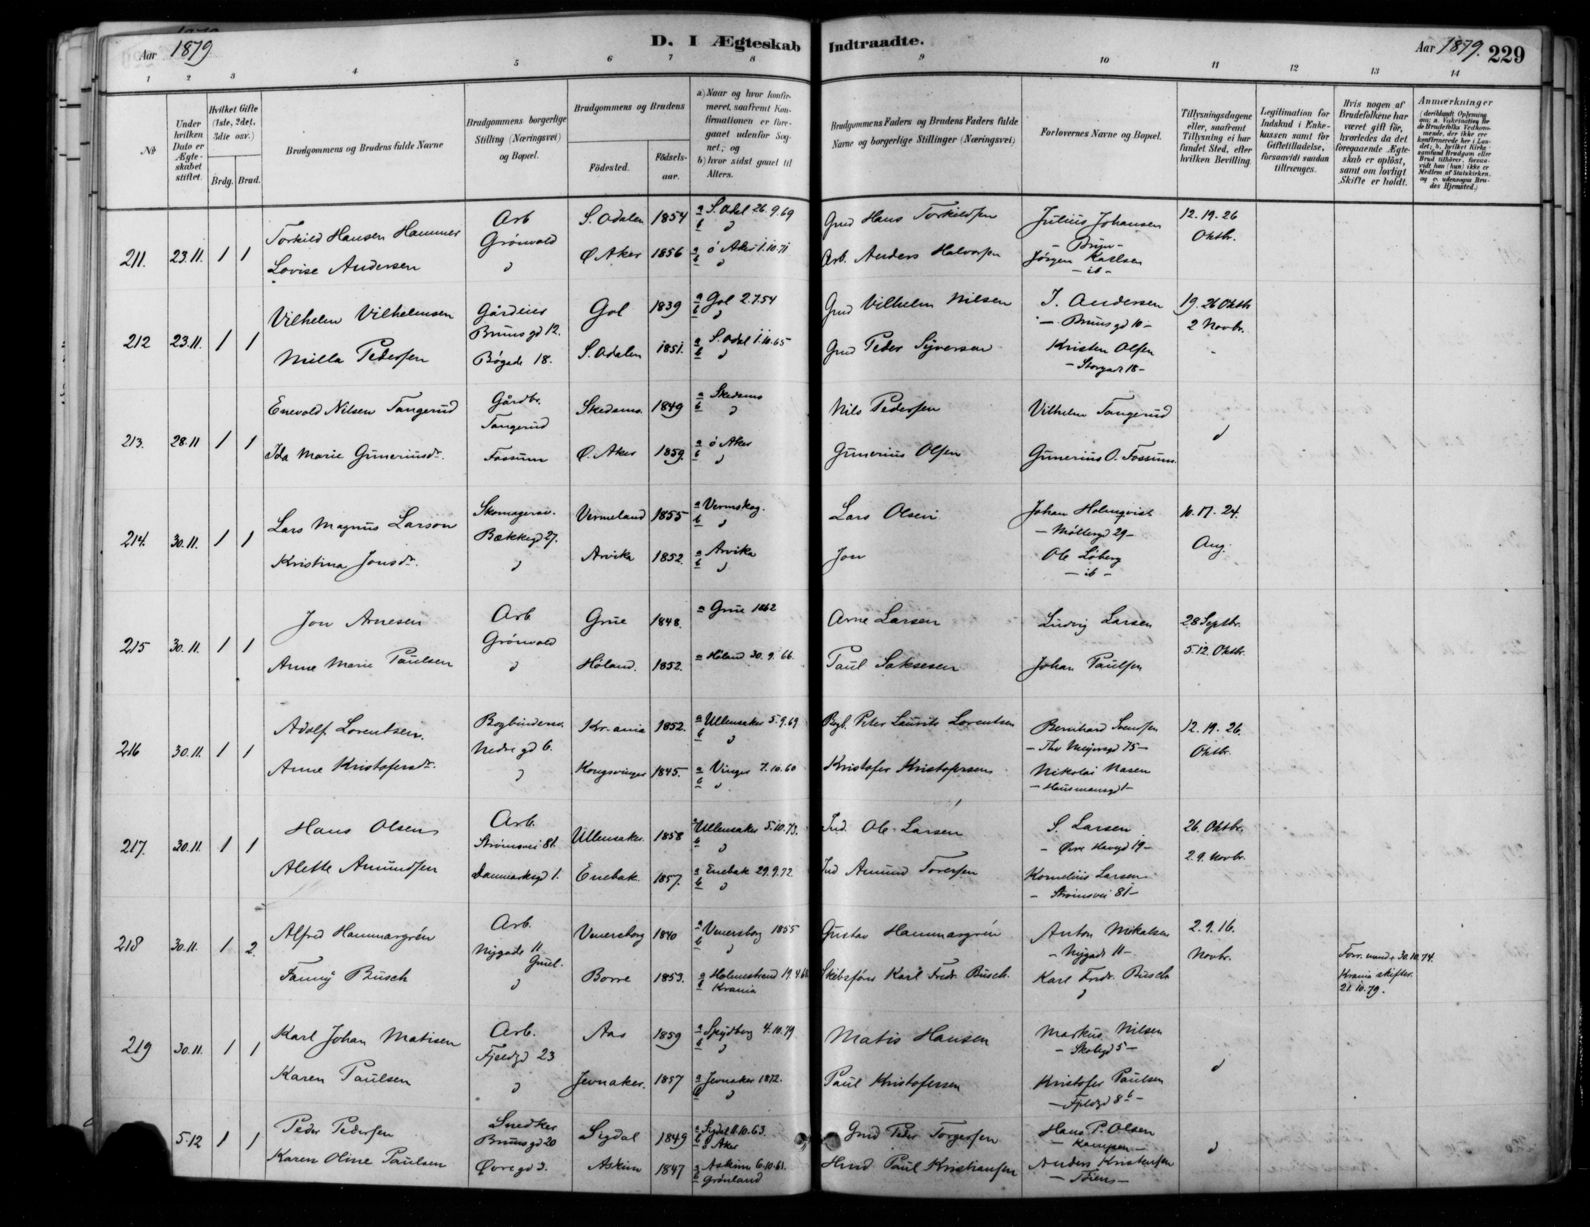 Aar 1879 D. I Ægteskab Indtraadte. Aar 1879. 229
1 2 3 4 5 6 7 8 9 10 11 12 13 14
No
Under hvilken Dato er Ægteskabet stiftet.
Hvilket Gifte (1ste, 2det, 3die osv.)
Brdg. Brud.
Brudgommens og Brudens fulde Navne
Brudgommens borgerlige Stilling (Næringsvei) og Bopæl.
Brudgommens og Brudens
Födested. Födselsaar.
a) Naar og hvor konfirmeret, saafremt Konfirmationen er foregaaet udenfor Sognet; og
b) hvor sidst gaaet til Alters.
Brudgommens Faders og Brudens Faders fulde Navne og borgerlige Stillinger (Næringsvei)
Forlovernes Navne og Bopæl.
Tillysningsdagene eller, saafremt Tillysning ei har fundet Sted, efter hvilken Bevilling
Legitimation for Indskud i Enkekassen samt for Giftetilladelse, forsaavidt saadan tiltrænges.
Hvis nogen af Brudefolkene har været gift för, hvorledes da det foregaaende Ægteskab er oplöst, samt om lovligt Skifte er holdt.
Anmærkninger
211. 23.11. 1 1
Torkild Hansen Hammer Arb Grönvold S. Odalen 1854 a S. Odal 26.9.69 Gmd Hans Torkildsen Julius Johansen - Bryn - 12. 19. 26 Oktb.
Lovise Andersen Ø. Aker 1856 a Ö Aker 1.10.71 Arb. Anders Halvorsen Jörgen Karlsen - ib -
212 23.11. 1 1
Vilhelm Vilhelmsen Gårdeier Brunsgd 12. Gol 1839 a Gol 2.7.54 Gmd Vilhelm Nilsen J. Andersen - Brunsgd 10 - 19. 26 Oktb 2 Novbr.
Milla Pedersen Bögade 18. S. Odalen 1851. a S. Odal 1.10.65 Gmd Peder Syversen Kristen Olsen - Storgade 18 -
213. 28.11 1 1
Enevold Nilsen Tangerud Gårdbr. Tangerud Skedsmo. 1849 a Skedsmo Nils Pedersen Vilhelm Tangerud
Ida Marie Gunerius dr. Fossum Ø. Aker 1859. a Ö Aker Gunerius Olsen Gunerius O. Fossum
214. 30.11. 1 1
Lars Magnus Larson Skomagersv. Bækkegd 27. Vermeland 1855 a Vermskog. Lars Olsen Johan Holmqvist - Möllergd 29 - 10. 17. 24. Aug.
Kristina Jons dr. Arvika 1852. a Arvika Jon Ole Löberg - ib -
215 30.11. 1 1
Jon Arnesen Arb Grönvold Grue 1848. a Grue 1862 Arne Larsen Ludvig Larsen 28 Septbr.
Anne Marie Paulsen Höland. 1852. a Höland 30.9.66. Paul Saksesen Johan Paulsen 5.12. Oktbr.
216 30.11. 1 1
Adolf Lorentsen. Bogbindersv. Nedregd 6. Kr.ania 1852. a Ullensaker 5.9.69 Bogb. Peter Laurits Lorentsen Bernhard Svensen - Thv Meyersgd 75 - 12. 19. 26. Oktbr.
Anne Kristofers dr. Kongsvinger 1845. a Vinger 7.10.60 Kristofer Kristofersen Nikolai Nasen - Hausmannsgd 1 -
217. 30.11. 1 1
Hans Olsen Arb. Strömsvei 81. Ullensaker. 1858 a Ullensaker 5.10.73. Ind. Ole Larsen S. Larsen - Övre Havegd 19 - 26. Oktbr.
Alette Amundsen Danmarksgd 1. Enebak. 1857. a Enebak 29.9.72 Ind Amund Toresen Kornelius Larsen - Strömsvei 81 - 2.9. Novbr.
218 30.11. 1 2.
Alfred Hammargrén Arb. Nygade 11. Venersborg 1840 a Venersborg 1855 Gustav Hammargrén Anton Mikalsen - Nygade 11 - 2. 9. 16. Novbr.
Fanny Busch Borre 1853. a Holmestrand b Krania Skibsförer Karl Fredr. Busch. Karl Fredr. Busch Forr. mand + 30.10.74. Krania skifter. 21.10.79.
219 30.11. 1 1
Karl Johan Matisen Arb. Fjeldgd 23 Aas 1859 a Spydberg 4.10.79 Matis Hansen Markus Nilsen - Skolegd 5 -
Karen Paulsen Jevnaker. 1857 a Jevnaker 1872. Paul Kristofersen Kristofer Paulsen - Fjeldgd 8 b -
5.12 1 1
Peder Pedersen Snedker Brunsgd 20 Sigdal 1849 a Sigdal 11.10.63. b Aker Gmd Peder Torgersen Hans P. Olsen - Kampen -
Karen Oline Paulsen Övregd 3. Askim 1847 a Askim 6.10.61. Grönland Hmd Paul Kristiansen Anders Kristensen